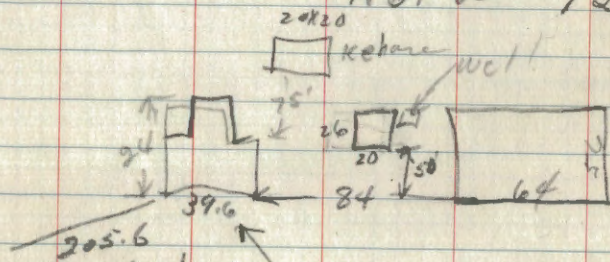 20X20
Well
75'
24
26
20
50'
39.6
84
64
205.6